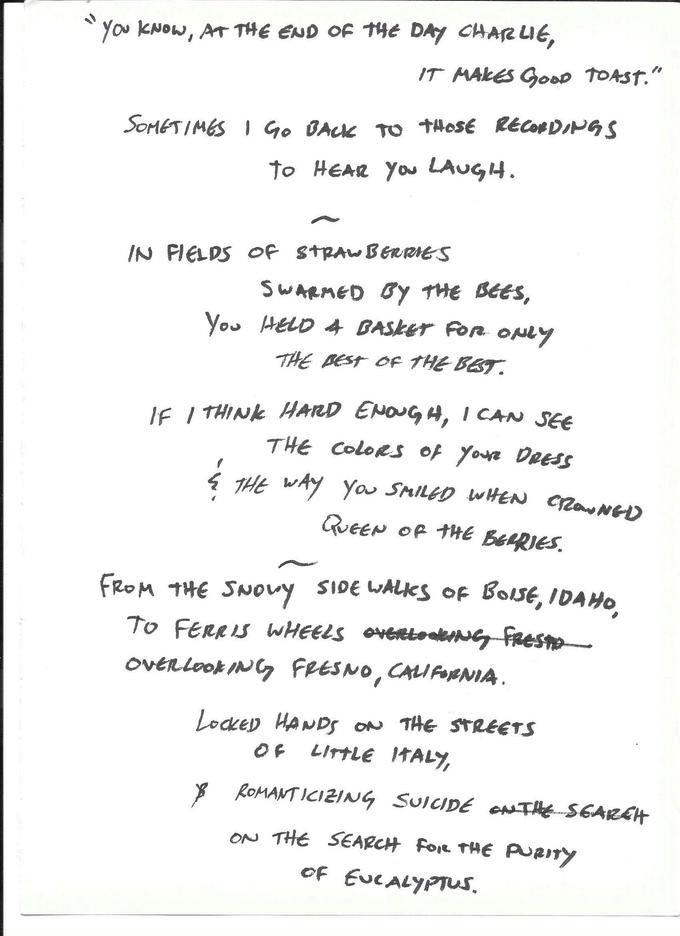 "YOU KNOW, AT THE END OF THE DAY CHARLIE,
IT MAKES GOOD TOAST."
SOMETIMES I GO BACK TO THOSE RECORDINGS
TO HEAR YOU LAUGH.
~
IN FIELDS OF STRAWBERRIES
SWARMED BY THE BEES,
YOU HELD A BASKET FOR ONLY
THE BEST OF THE BEST.
IF I THINK HARD ENOUGH, I CAN SEE
THE COLORS OF YOUR DRESS
& THE WAY YOU SMILED WHEN CROWNED
QUEEN OF THE BERRIES.
~
FROM THE SNOWY SIDEWALKS OF BOISE, IDAHO,
TO FERRIS WHEELS OVERLOOKING FRESNO
OVERLOOKING FRESNO, CALIFORNIA.
LOCKED HANDS ON THE STREETS
OF LITTLE ITALY,
& ROMANTICIZING SUICIDE ON THE SEARCH
ON THE SEARCH FOR THE PURITY
OF EUCALYPTUS.